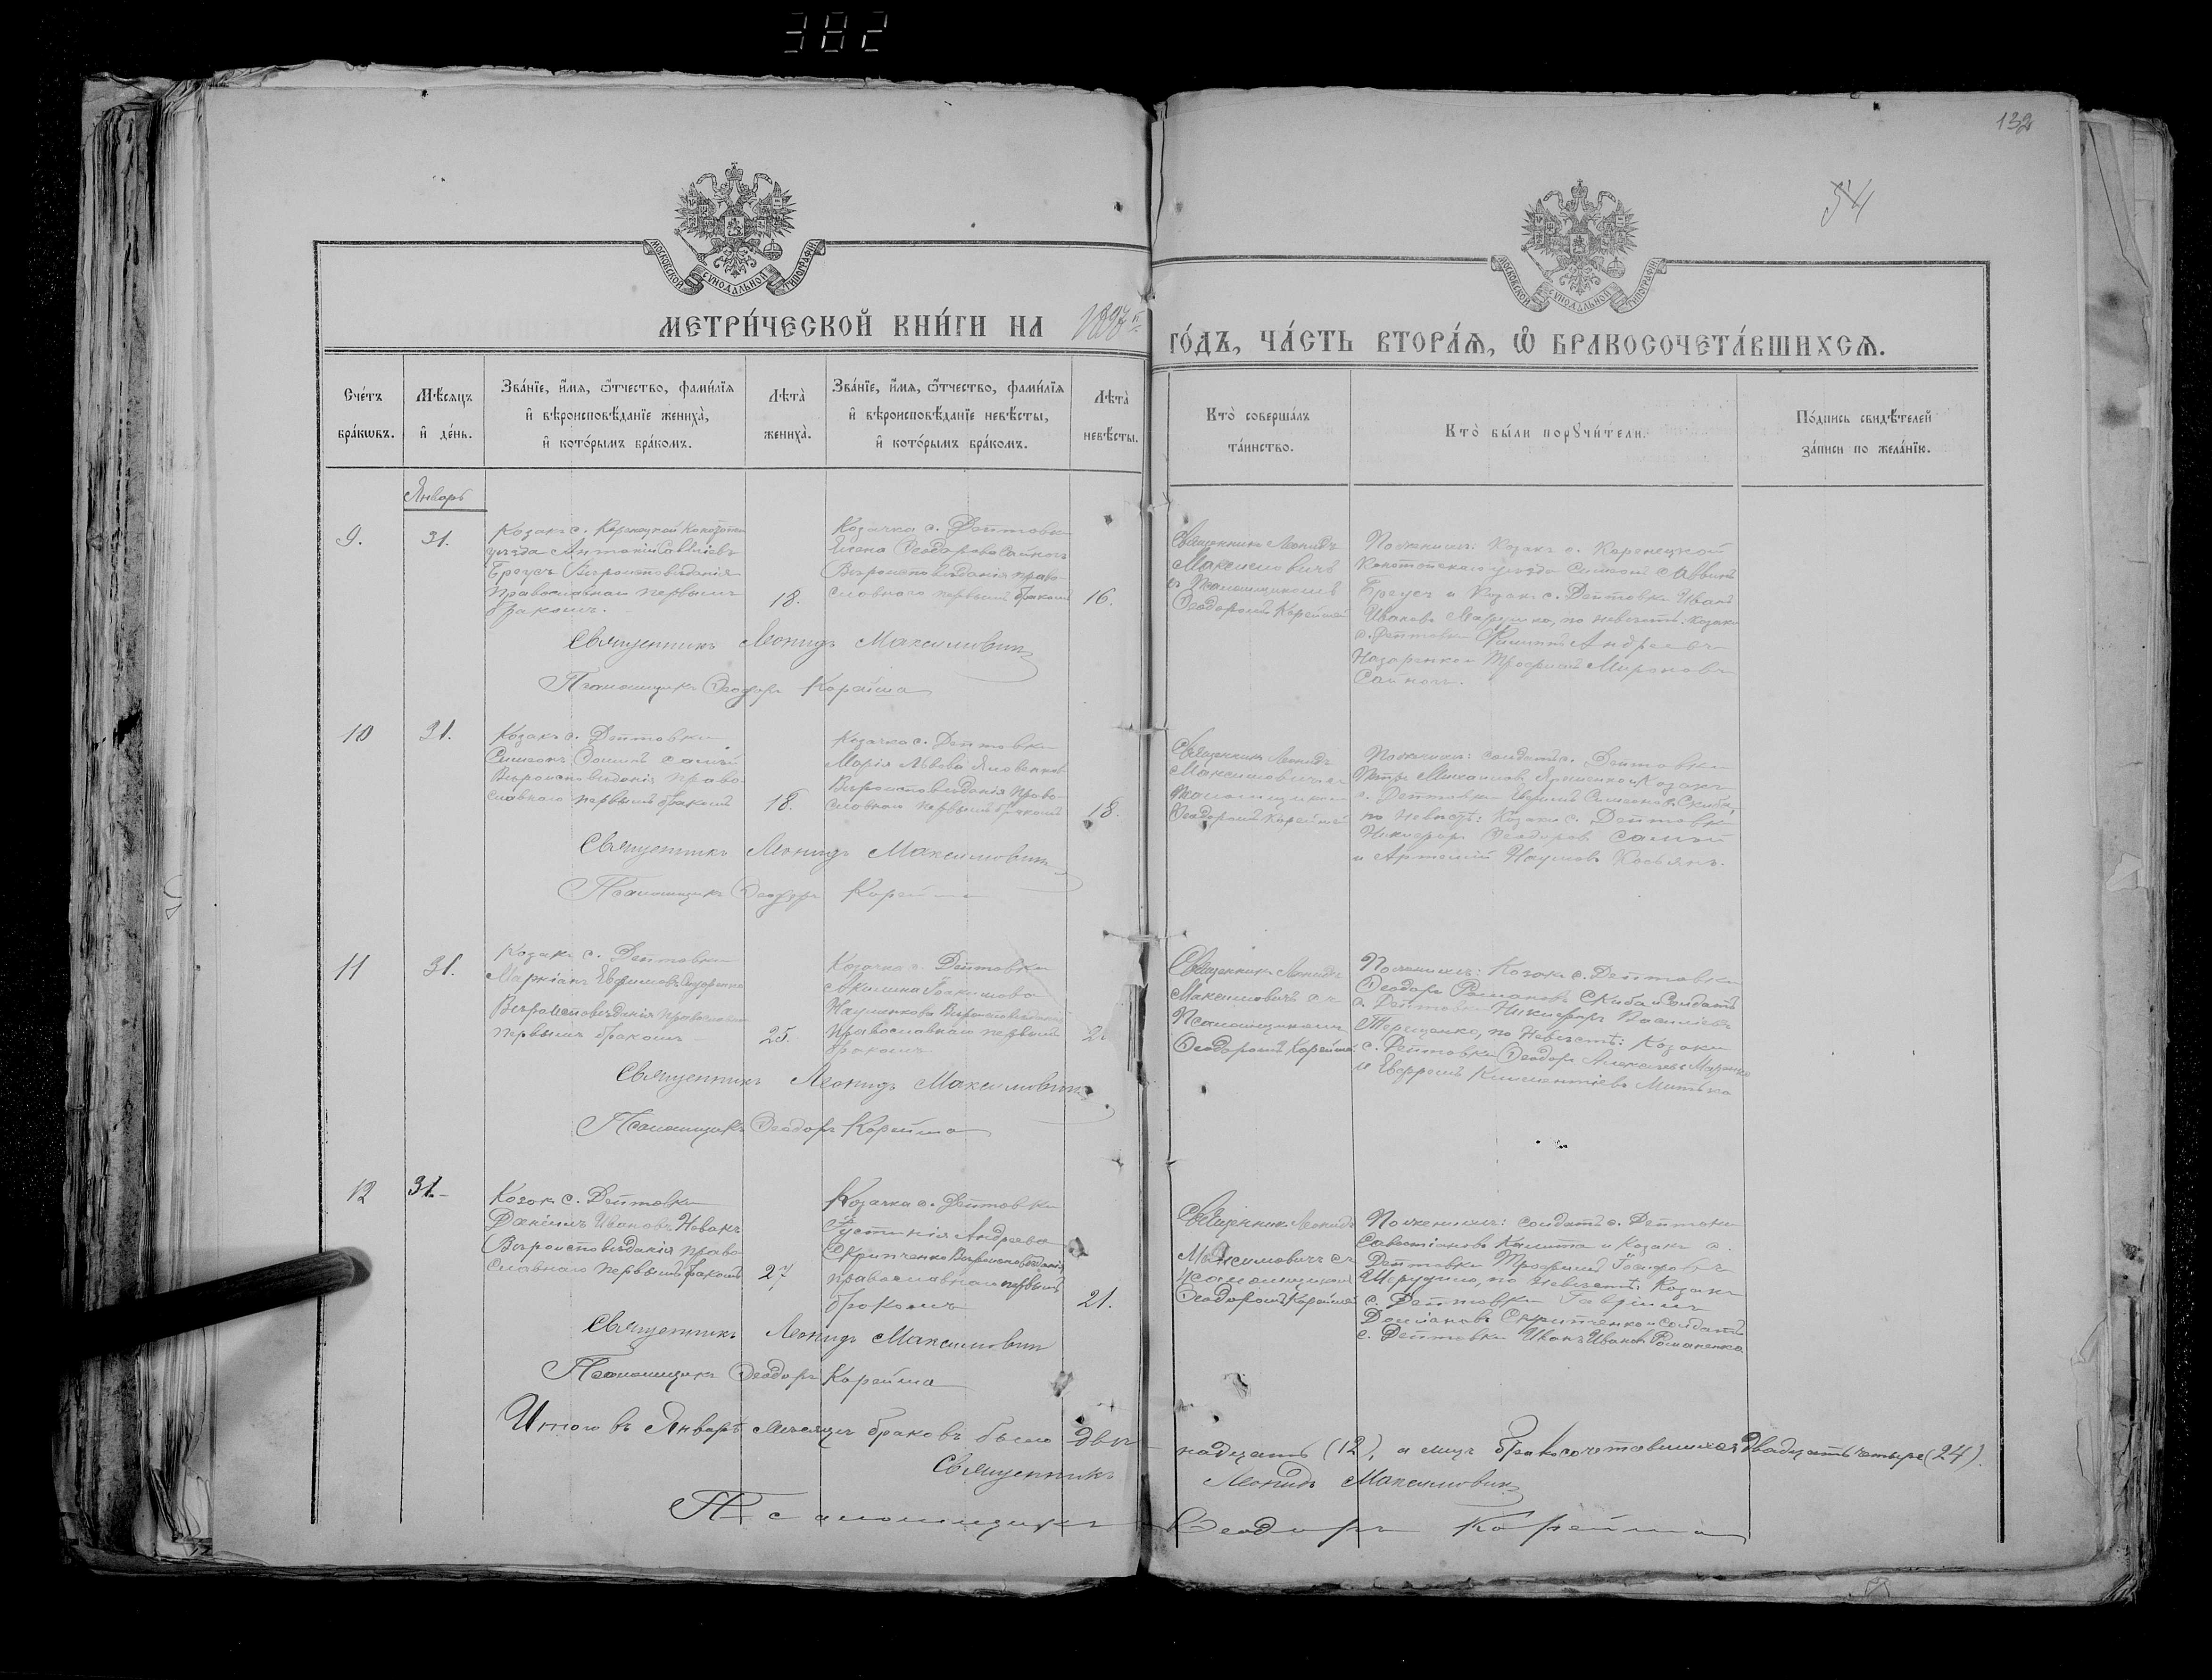 382
132
54
МОСКОВСКОЙ СѴНОДАЛЬНОЙ ТИПОГРАФІИ
МОСКОВСКОЙ СѴНОДАЛЬНОЙ ТИПОГРАФІИ
МЕТРИ́ЧЕСКОЙ КНИ́ГИ НА 1897й
ГО́ДЪ, ЧА́СТЬ ВТОРА́Я, Ѡ БРАКОСОЧЕТА́ВШИХСЯ.
Сче́тъ
бра́кѡвъ.
Мѣ́сяцъ
и҆ де́нь.
Зва́нїе, и҆́мя, ѻ҆́тчество, фами́лїя
и҆ вѣроисповѣ́данїе жениха̀,
и҆ кото́рымъ бра́комъ.
Лѣта̀
жениха̀.
Зва́нїе, и҆́мя, ѻ҆́тчество, фами́лїя
и҆ вѣроисповѣ́данїе невѣ́сты,
и҆ кото́рымъ бра́комъ.
Лѣта̀
невѣ́сты.
Кто̀ соверша́лъ
та́инство.
Кто̀ бы́ли порꙋчи́тели.
По́дпись свидѣ́телей
за́писи по жела́нїю.
Январь
9.
31.
Козакъ с. Конотопск
уѣзда Антоній Савиіевъ
Вѣроисповѣданія
православнаго первымъ
бракомъ.
18.
Козачка с. Дептовки
Елена Ѳеодорова
Вѣроисповѣданія право-
славнаго первымъ бракомъ
16.
Священникъ Леонидъ
Максимовичъ
съ Псаломщикомъ
Ѳеодоромъ Корейшей
По женихѣ: Козакъ с.
Конотопскаго уѣзда
и Козакъ с. Дептовки Иванъ
Ивановъ по невѣстѣ: Козаки
с. Дептовки Филиппъ Андреевъ
Назаренко и Трофимъ Мироновъ
Священникъ Леонидъ Максимович
Псаломщикъ Ѳеодоръ Корейша
10
31.
Козакъ с. Дептовки
Симеонъ
Вѣроисповѣданія право-
славнаго первымъ бракомъ
18.
Козачка с. Дептовки
Марія Львова Яковенкова
Вѣроисповѣданія право-
славнаго первымъ бракомъ
18.
Священникъ Леонидъ
Максимовичъ съ
Псаломщикомъ
Ѳеодоромъ Корейшей
По женихѣ: солдатъ с. Дептовки
Петръ Михаиловъ и Козакъ
с. Дептовки Симеоновъ Скиба,
по Невѣстѣ: Козаки с. Дептовки
Никифоръ Ѳеодоровъ
и Артемій Наумовъ Касьянъ.
Священникъ Леонидъ Максимович
Псаломщикъ Ѳеодоръ Корейша
11
31.
Козакъ с. Дептовки
Маркіанъ Евфимовъ
Вѣроисповѣданія православнаго
первымъ бракомъ
25.
Козачка с. Дептовки
Акилина
Науменкова Вѣроисповѣданія
Православнаго первымъ
бракомъ
Священникъ Леонидъ
Максимовичъ съ
Псаломщикомъ
Ѳеодоромъ Корейшей
По женихѣ: Козакъ с. Дептовки
Ѳеодоръ Романовъ Скиба и Солдатъ
с. Дептовки Никифоръ Василіевъ
Терещенко, по Невѣстѣ: Козаки
с. Дептовки Ѳеодоръ Алексіевъ
и Ефремъ Климентіевъ Митько
Священникъ Леонидъ Максимович
Псаломщикъ Ѳеодоръ Корейша
12
31.-
Козак с. Дептовки
Даніилъ Ивановъ Новакъ
Вѣроисповѣданія право-
славнаго первымъ бракомъ
27,
Козачка с. Дептовки
Іустинія Андреева
Скрипченко Вѣроисповѣданія
православнаго первымъ
бракомъ
21.
Священникъ Леонидъ
Максимовичъ съ
Псаломщикомъ
Ѳеодоромъ Корейшей
По женихѣ: солдатъ с. Дептовки
Савостіановъ Калита и Козакъ с.
Дептовки Трофимъ Іосифовъ
по невѣстѣ: Козакъ
с. Дептовки Гавріилъ
Доміановъ Скрипченко и Солдатъ
с. Дептовки Иванъ Ивановъ Романенко
Священникъ Леонидъ Максимович
Псаломщикъ Ѳеодоръ Корейша
Итого въ Январѣ мѣсяцѣ браковъ было двѣ-
надцать (12), а лицъ бракосочетавшихся двадцать четыре (24).
Священникъ Леонидъ Максимович
Псаломщикъ Ѳеодоръ Корейша